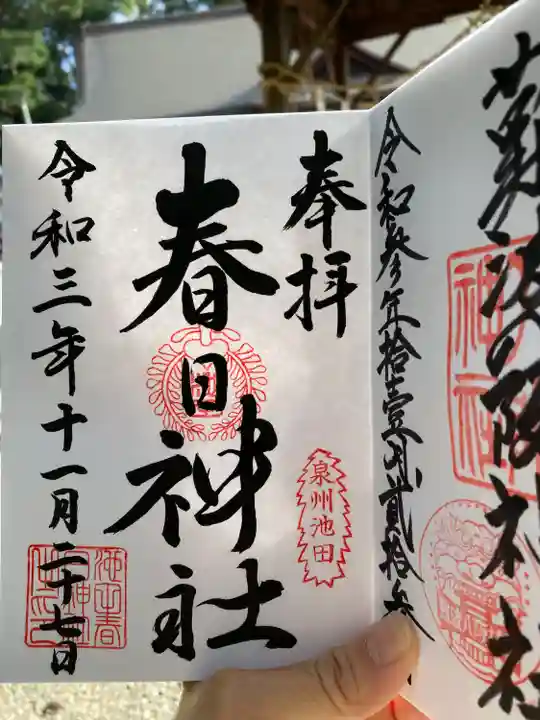 難波八阪神社
令和参年拾壹月貳拾参
奉拝
泉州池田
春日神社
令和三年十一月二十七日